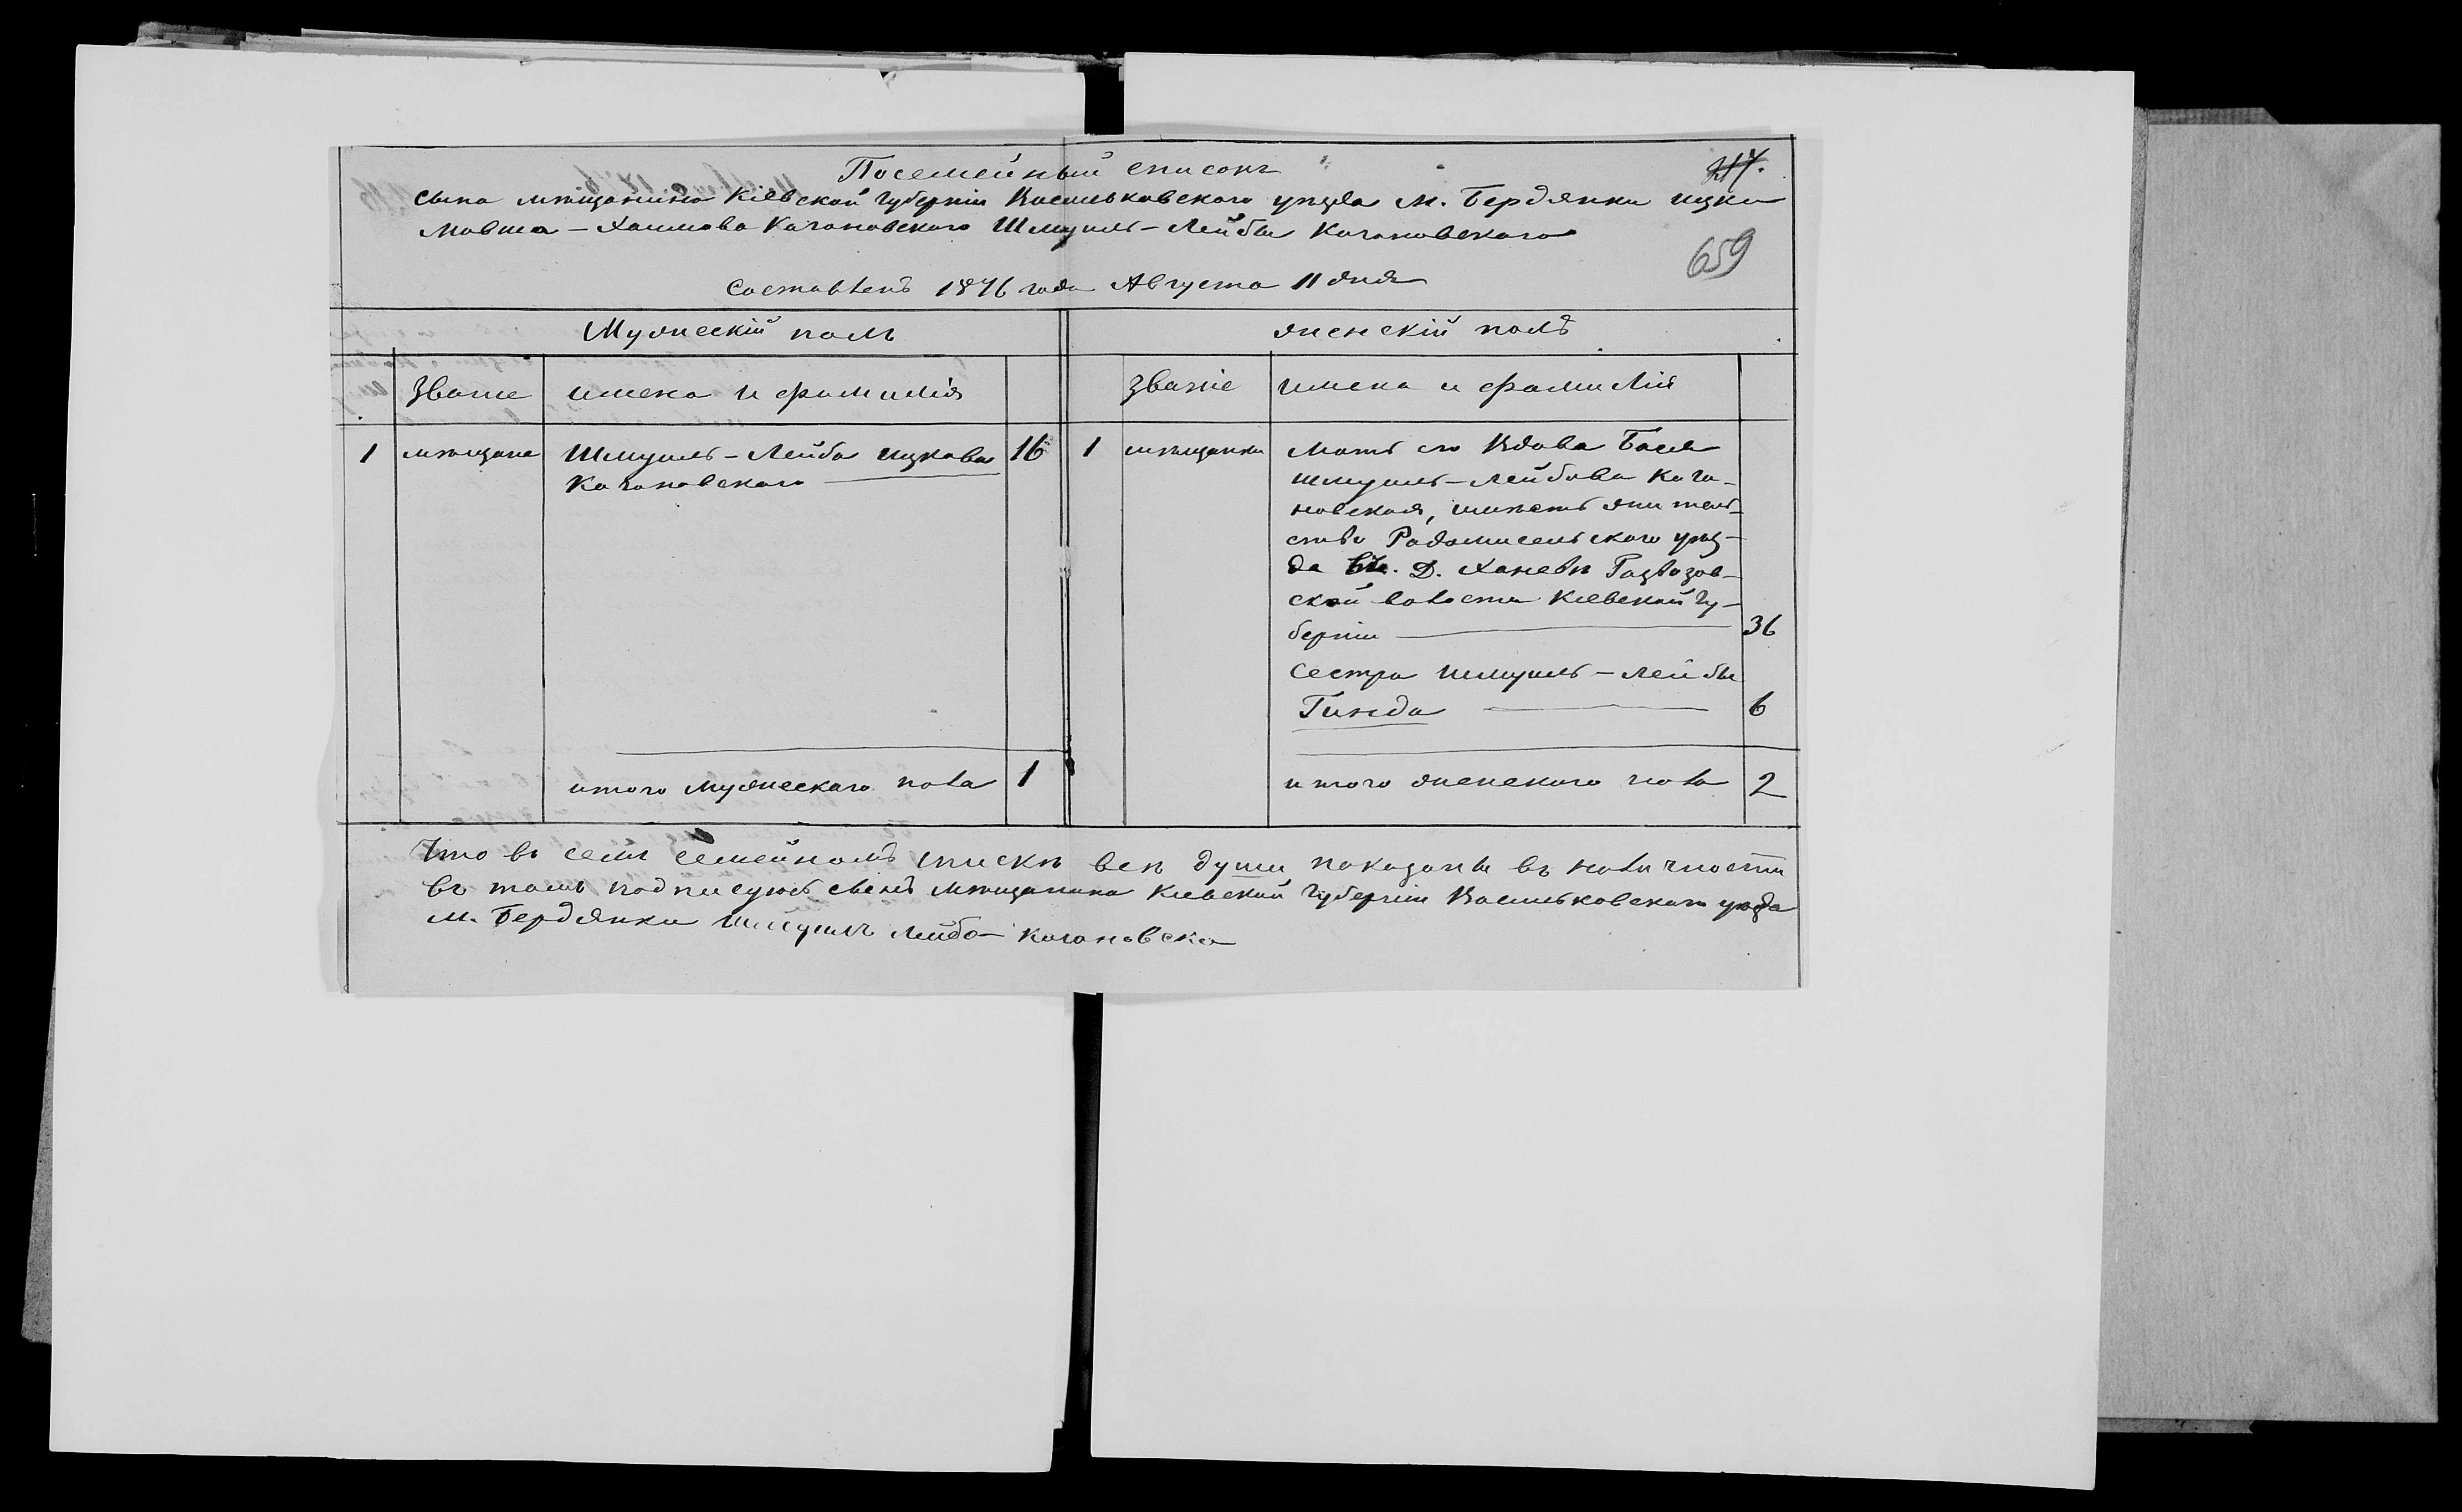 Посемейный списокъ
сына мѣщанина Кіевской губерніи Васильковскаго уѣзда м. Бердянки Ицки
Мовша-Хаимова Кагановскаго Шмуиль-Лейбы Кагановскаго
659
составленъ 1876 года Августа 11 дня
Мужескій полъ
женскій полъ
Званіе
имена и фамилія
званіе
имена и фамилія
1 мѣщане Шмуиль-Лейба Ицкова 16
Кагановскаго
1 мѣщанки Мать его Вдова Бася
Шмуиль-Лейбова Кага-
новская, имѣетъ житель-
ство Радомисельского уѣз-
да Д. Ханевѣ Газвозов-
ской волости Кіевской гу-
берніи 36
Сестра Шмуиль-Лейбы
Гинда 6
итого мужескаго пола 1
итого женскаго пола 2
Что въ семъ семейномъ спискѣ всѣ души показаны въ наличности
въ томъ подписуюсь сынъ мѣщанина Кіевской губерніи Васильковскаго уѣзда
м. Бердянки Шмуиль Лейба Кагановска